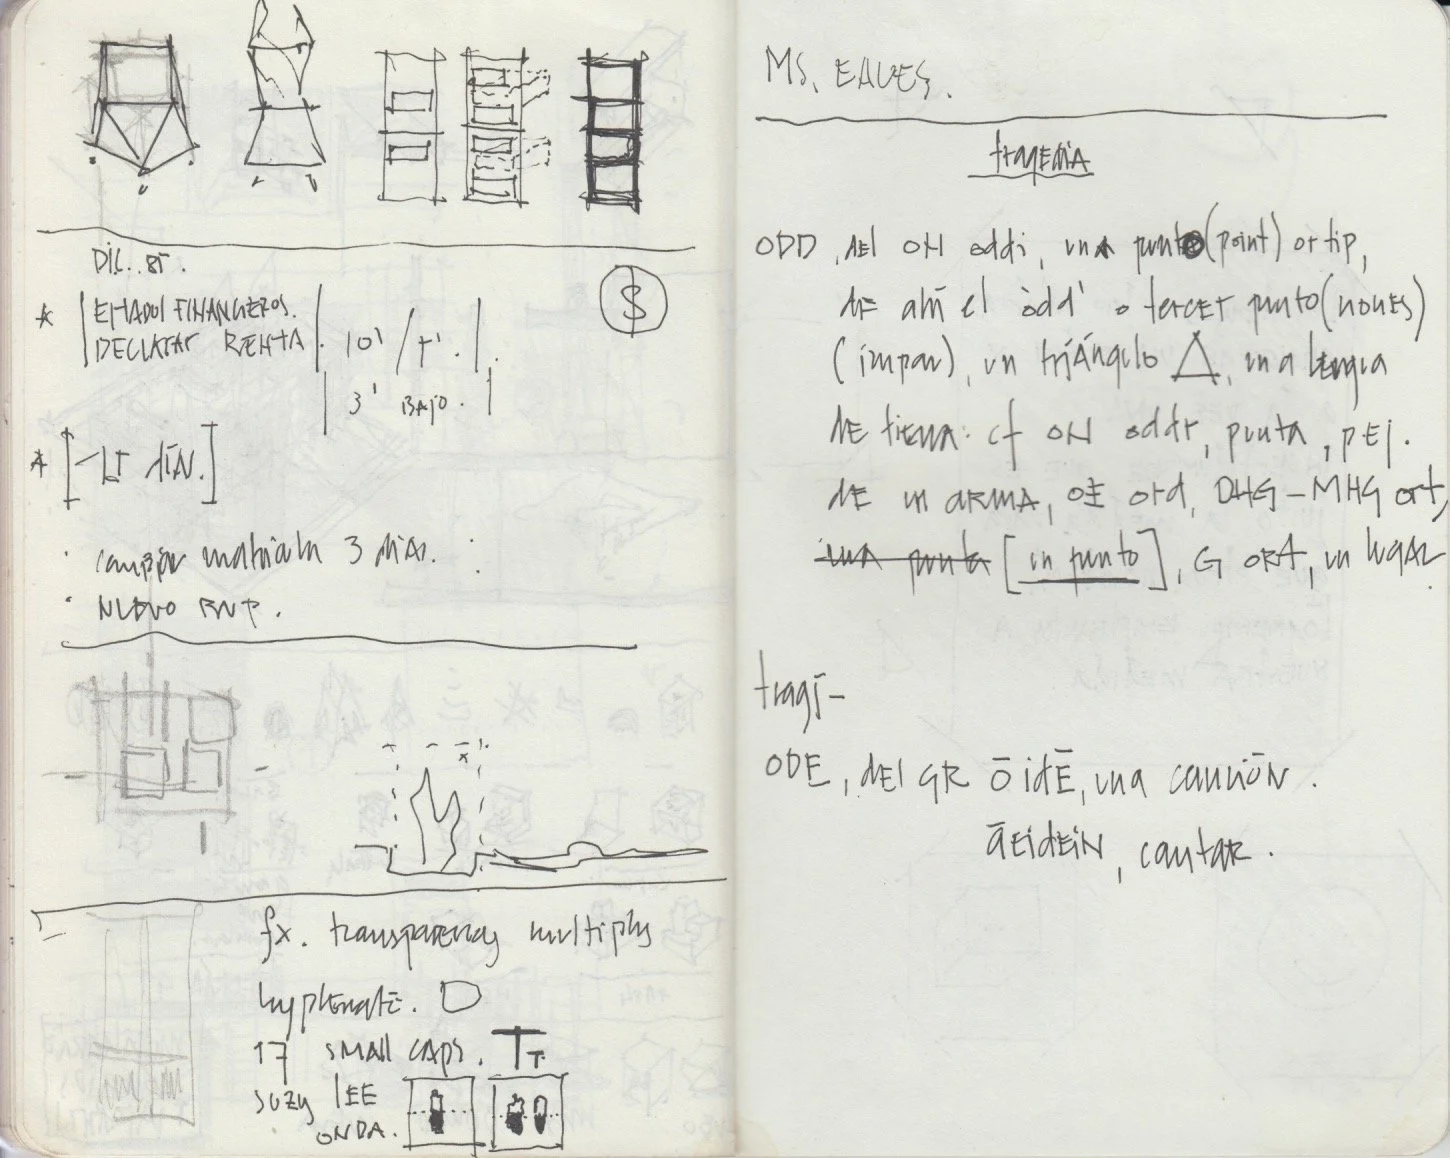 DIC. 85.
$
ESTADOS FINANCIEROS.
DECLARAR RENTA. 10' /
3' BAJO.
DÍN.
3 DÍAS.
NUEVO
fx. transparency multiply
hyphenate. D
17 SMALL CAPS. TT
SUZY LEE
ONDA.
MS. EAVES.
tragEDIA
ODD, del ON oddi, una punto (point) or tip,
DE ahí el 'odd' o tercer punto (nones)
(impar), un triángulo △, una lengua
DE tierra: cf ON oddr, punta, p EJ.
DE un ARMA, OE ord, OHG-MHG ort,
una punta [un punto], G ORT, un lugar.
tragi-
ODE, dEl GR ōidē, una canción.
āEidEiN, cantar.